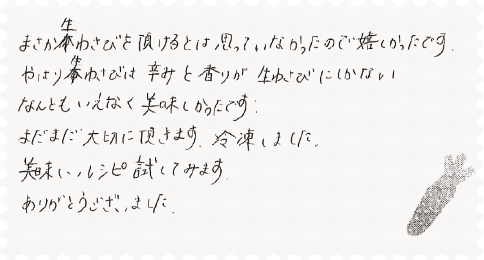 まさか生本わさびを頂けるとは思っていなかったので嬉しかったです.
やはり生本わさびは辛みと香りが生わさびにしかない
なんともいえなく美味しかったです.
まだまだ大切に頂きます. 冷凍しました.
美味しいレシピ試してみます.
ありがとうございました.